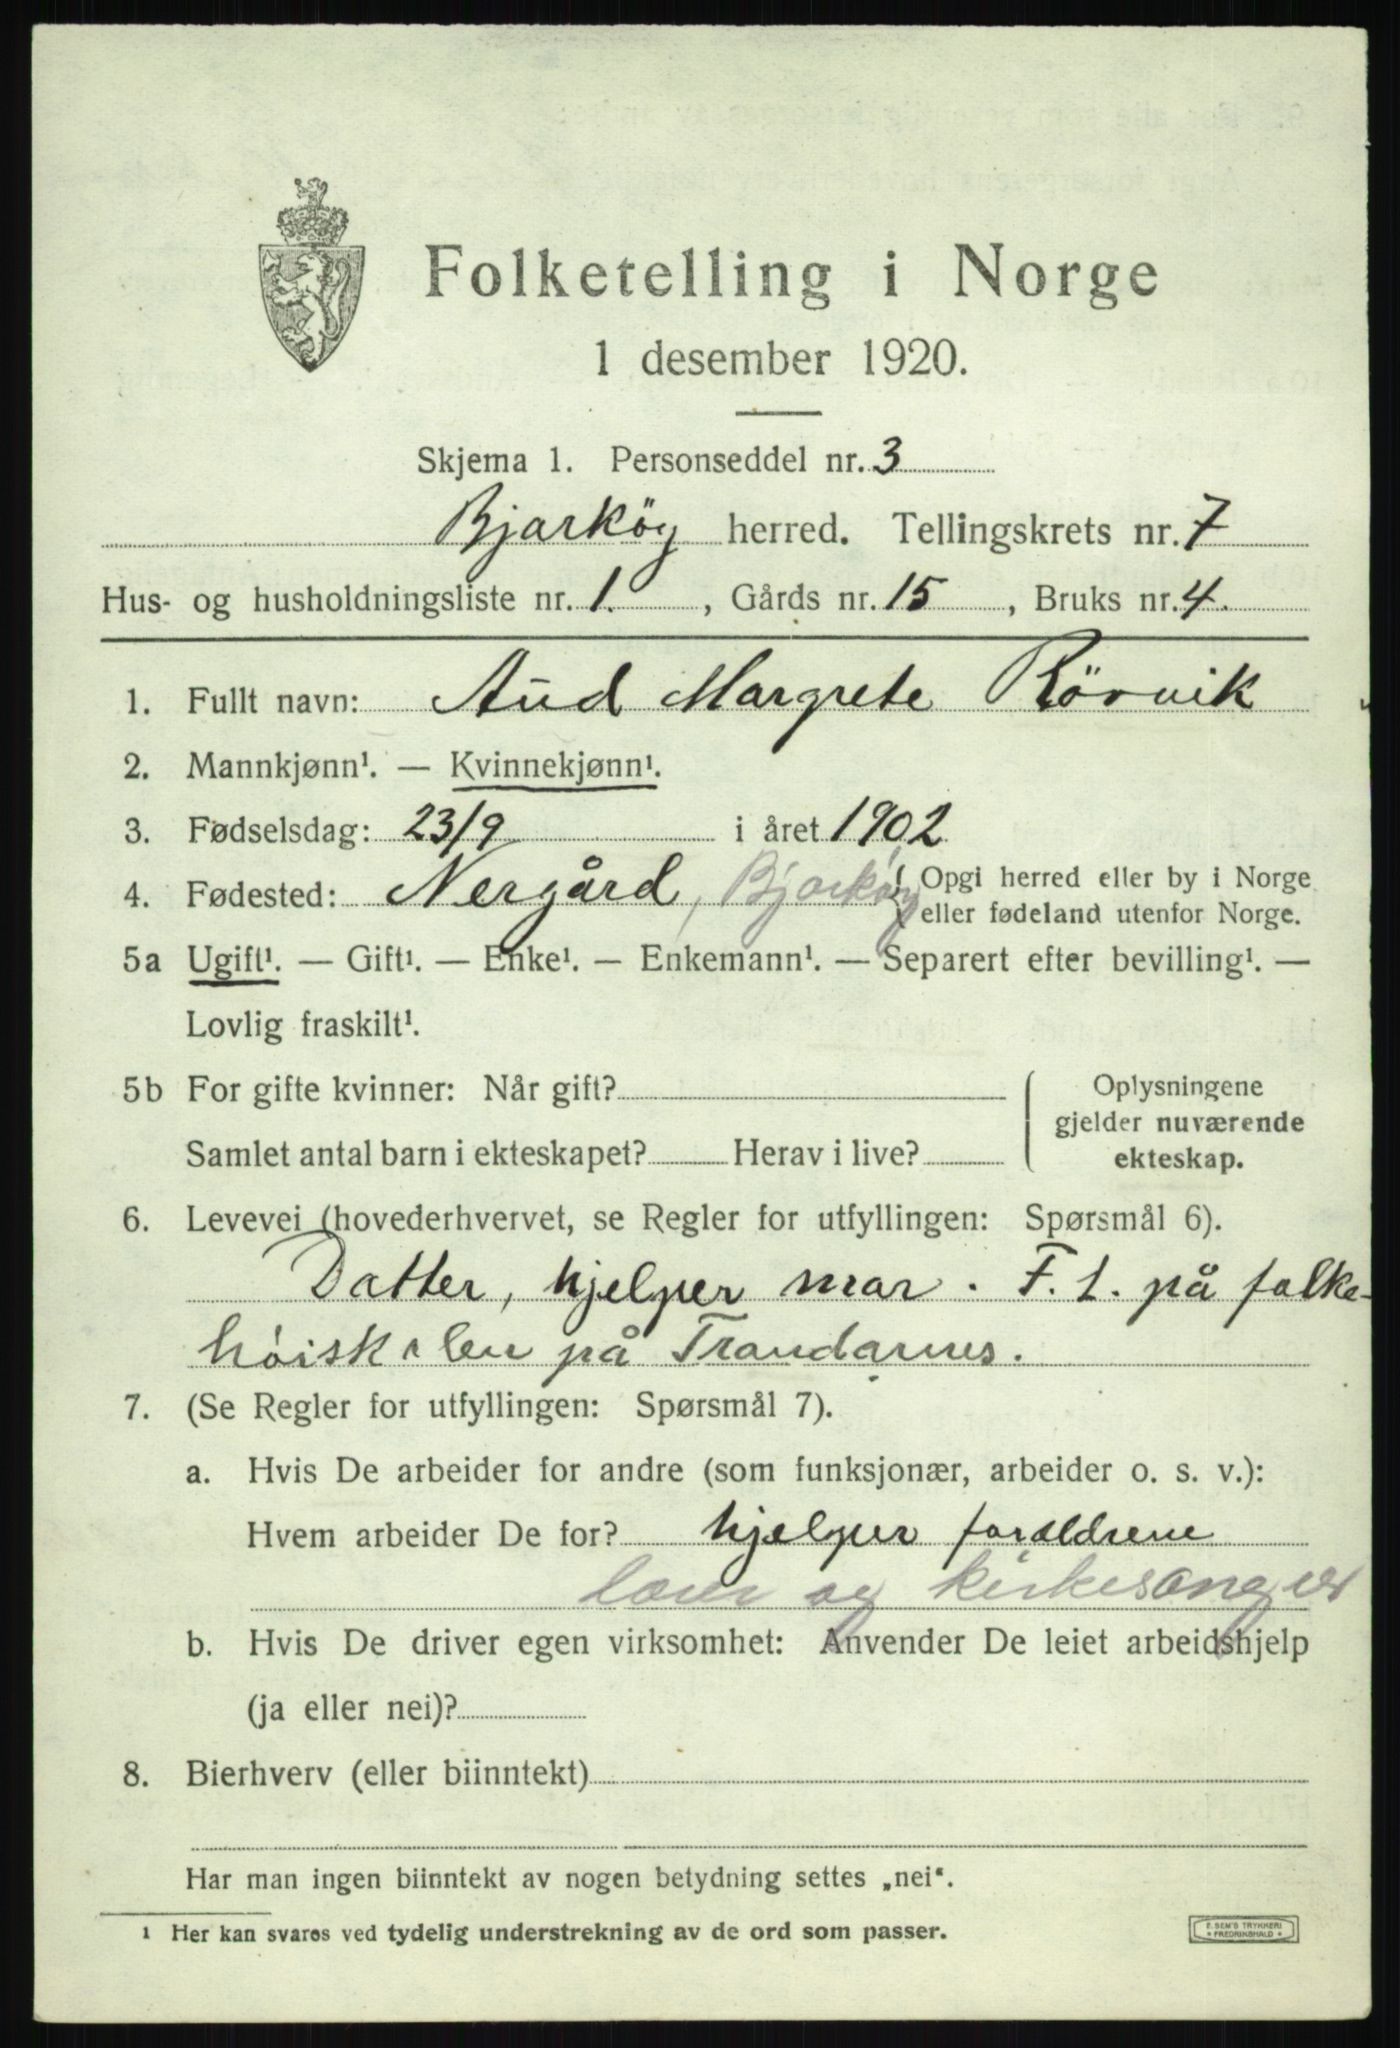 Folketelling i Norge
1 desember 1920.
Skjema 1. Personseddel nr. 3
Bjarköy herred. Tellingskrets nr. 7
Hus- og husholdningsliste nr. 1. , Gårds nr. 15 , Bruks nr. 4.
1. Fullt navn: Aud Margrete Rörvik
2. Mannkjønn¹. — Kvinnekjønn¹.
3. Fødselsdag: 23/9 i året 1902
4. Fødested: Nergård, Bjarköy { Opgi herred eller by i Norge
eller fødeland utenfor Norge.
5a Ugift¹. — Gift¹. — Enke¹. — Enkemann¹. — Separert efter bevilling¹. —
Lovlig fraskilt¹.
5b For gifte kvinner: Når gift? Oplysningene
gjelder nuværende
Samlet antal barn i ekteskapet? Herav i live? ekteskap.
6. Levevei (hovederhvervet, se Regler for utfyllingen: Spørsmål 6).
Datter, hjelper mor. F. t. på folke-
høiskolen på Trondarnes.
7. (Se Regler for utfyllingen: Spørsmål 7).
a. Hvis De arbeider for andre (som funksjonær, arbeider o. s. v.):
Hvem arbeider De for? hjelper forældrene
lærer og kirkesanger
b. Hvis De driver egen virksomhet: Anvender De leiet arbeidshjelp
(ja eller nei)?
8. Bierhverv (eller biinntekt)
Har man ingen biinntekt av nogen betydning settes „nei“.
¹ Her kan svares ved tydelig understrekning av de ord som passer.
E. SEM'S TRYKKERI
* FREDRIKSHALD *